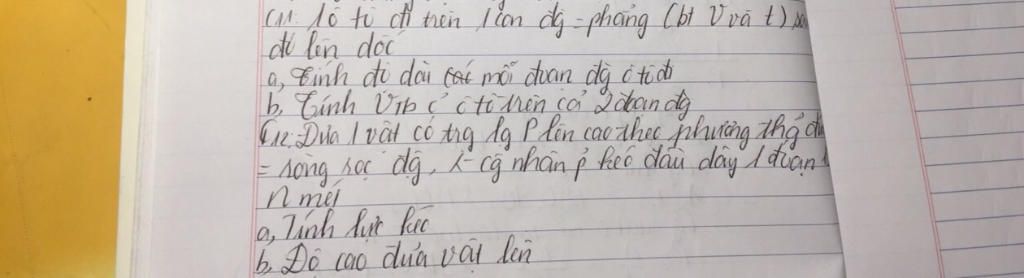 C11: 1ô tô đi trên 1 con đg = phẳng (bt V và t)
đi lên dốc
a, Tính độ dài mỗi đoạn đg ô tô đi
b, Tính Vtb c̉ ô tô trên cả 2 đoạn đg
C12: Đưa 1 vật có trg lg P lên cao theo phương thg đứ
= ròng rọc đg, cg nhân p̉ kéo đầu dây 1 đoạn
n mét
a, Tính lực kéo
b, Độ cao đưa vật lên